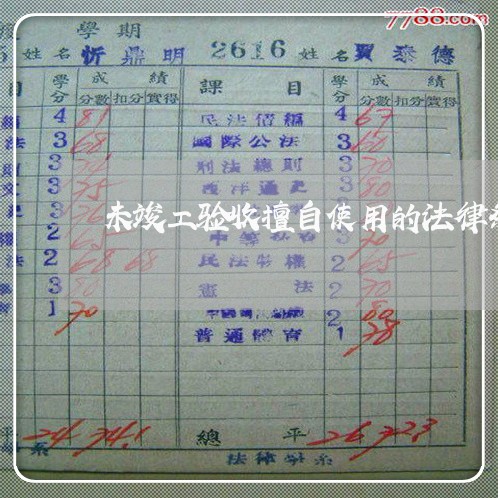 7788.com
學期
姓名 忻鼎明 2616 姓名 賈泰德
目 學分 成績 課目 學分 成績
分數 扣分 實得 分數 扣分 實得
4 81 民法債編 4 67
法 3 68 國際公法 3 60
3 刑法總則 3 70
3 75 西洋通史 3 80
未竣工验收擅自使用的法律
2 3 70
法 2 68 68 民法物權 2 65
3 80 憲法 2 70
1 70 2 80
普通體育 1 78
平 24 74.1 總平 26 72.3
系 法律學系